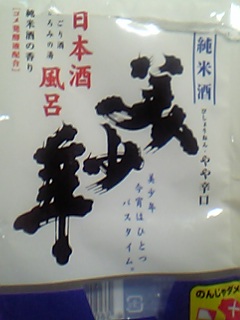 純米酒
びしょうねん・やや辛口
美少年
日本酒
風呂
にごり酒
とろみの湯
純米酒の香り
[コメ発酵液配合]
美少年
今宵はひとつ
バスタイム。
のんじゃダメ